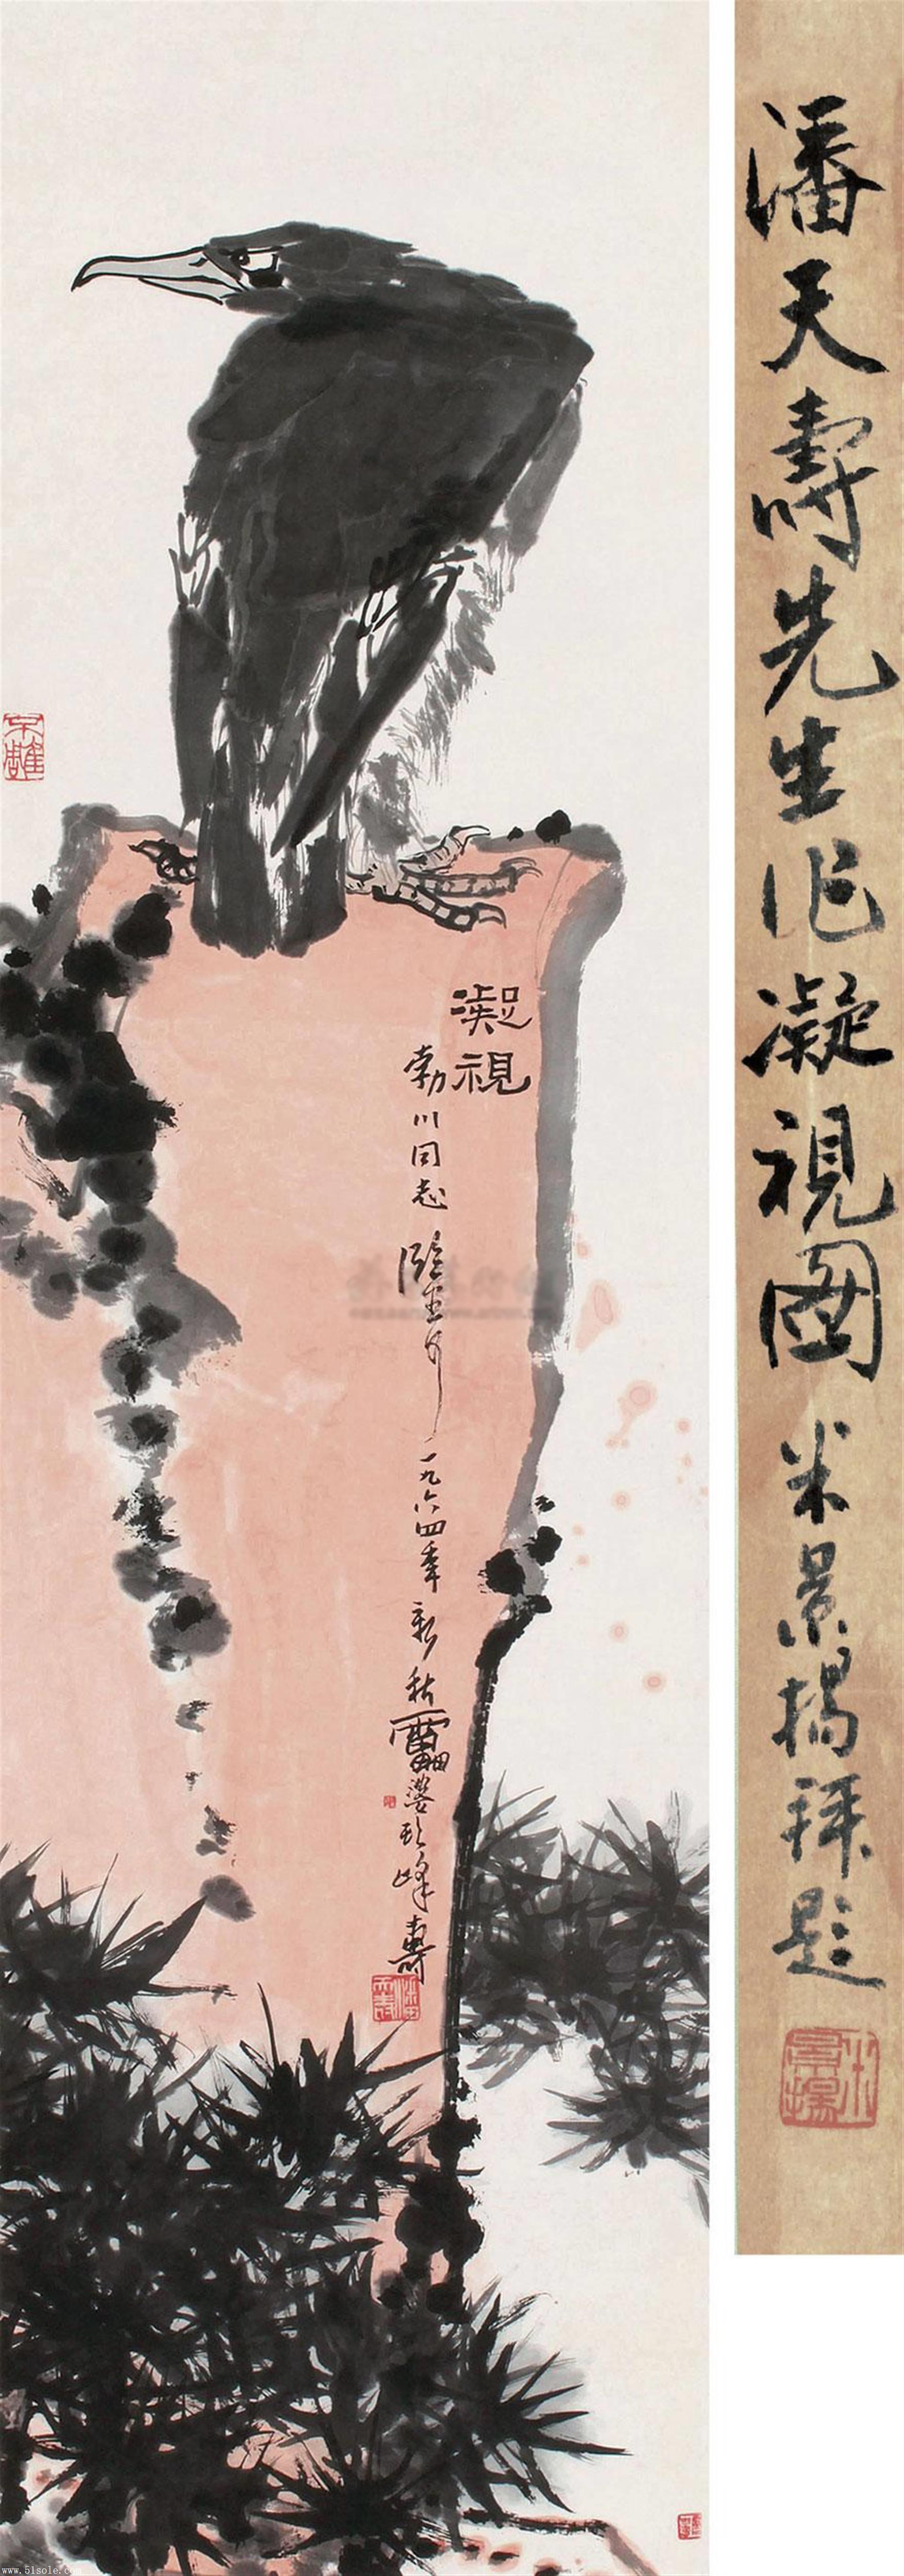 凝視
勃川同志鑒正
一九六四年新秋雷婆頭峰壽
潘天壽先生作凝視圖 米景揚拜題
米景揚
www.51sole.com